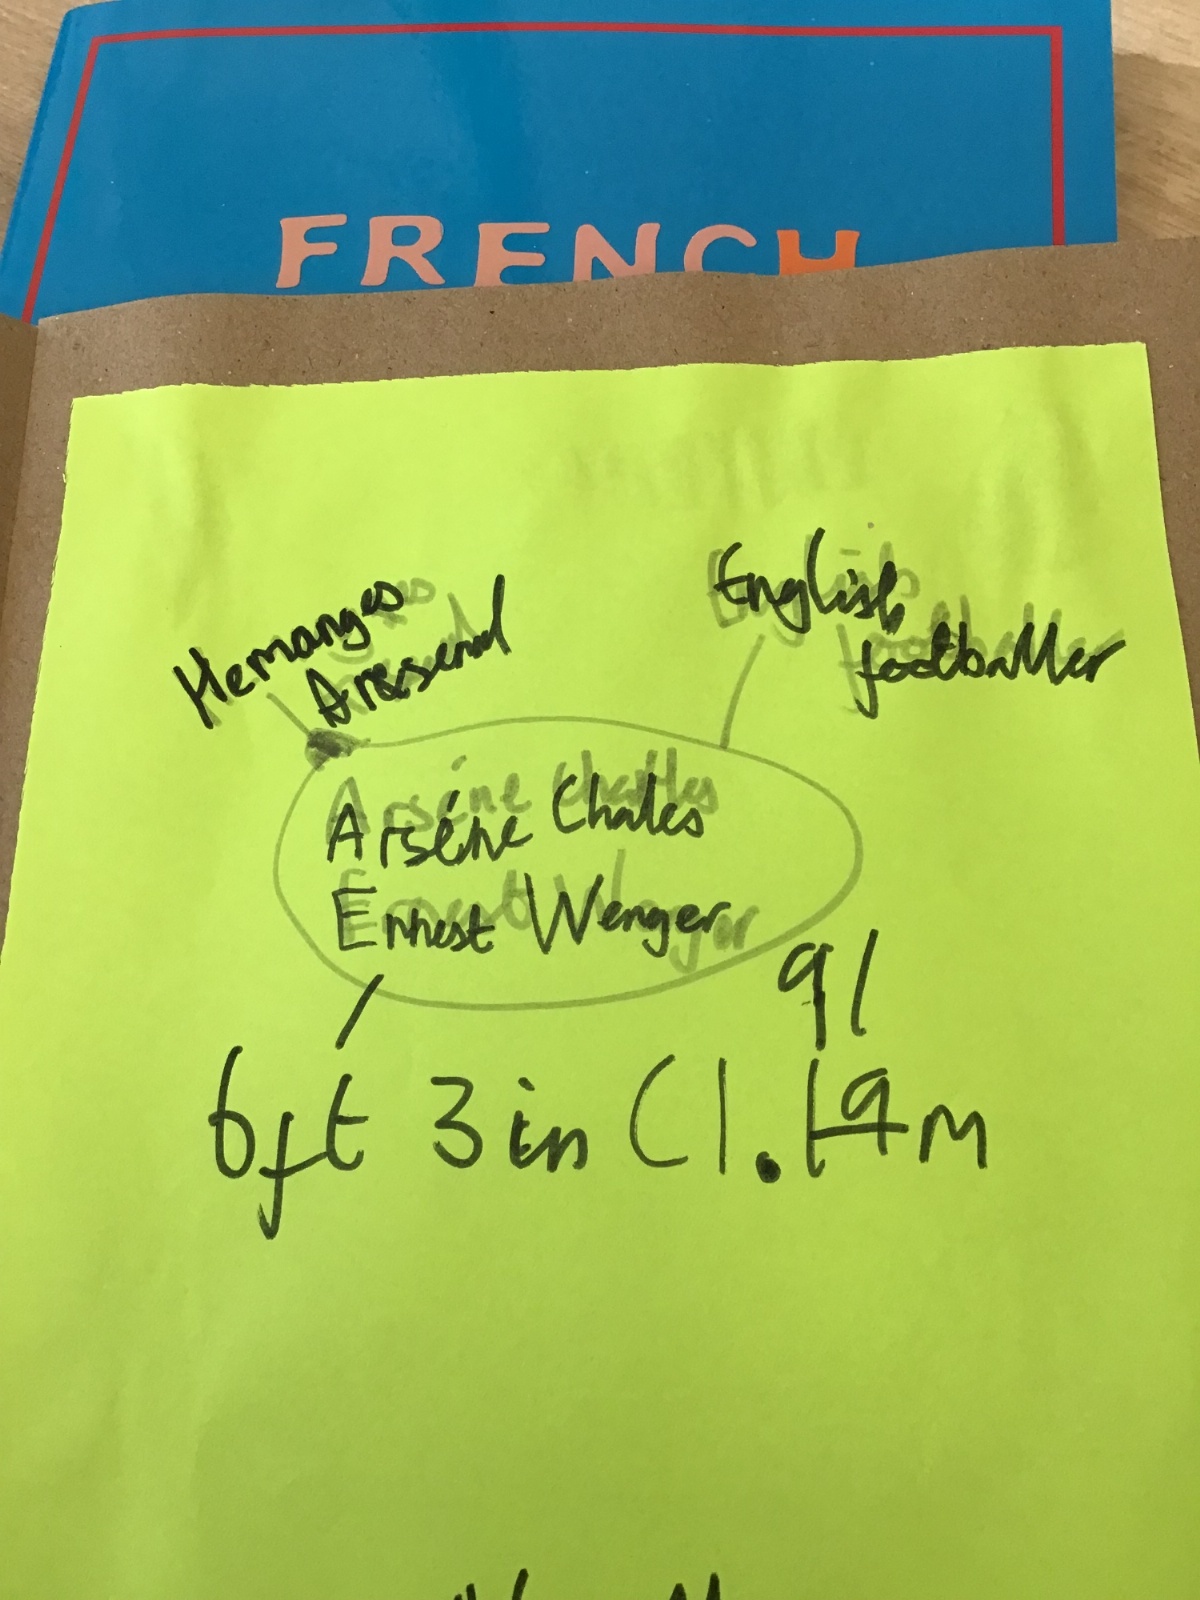 FRENCH
Hemanges
Aresenal
English
footballer
Arséne Chales
Ernest Wenger
91
6ft 3in (1.19m